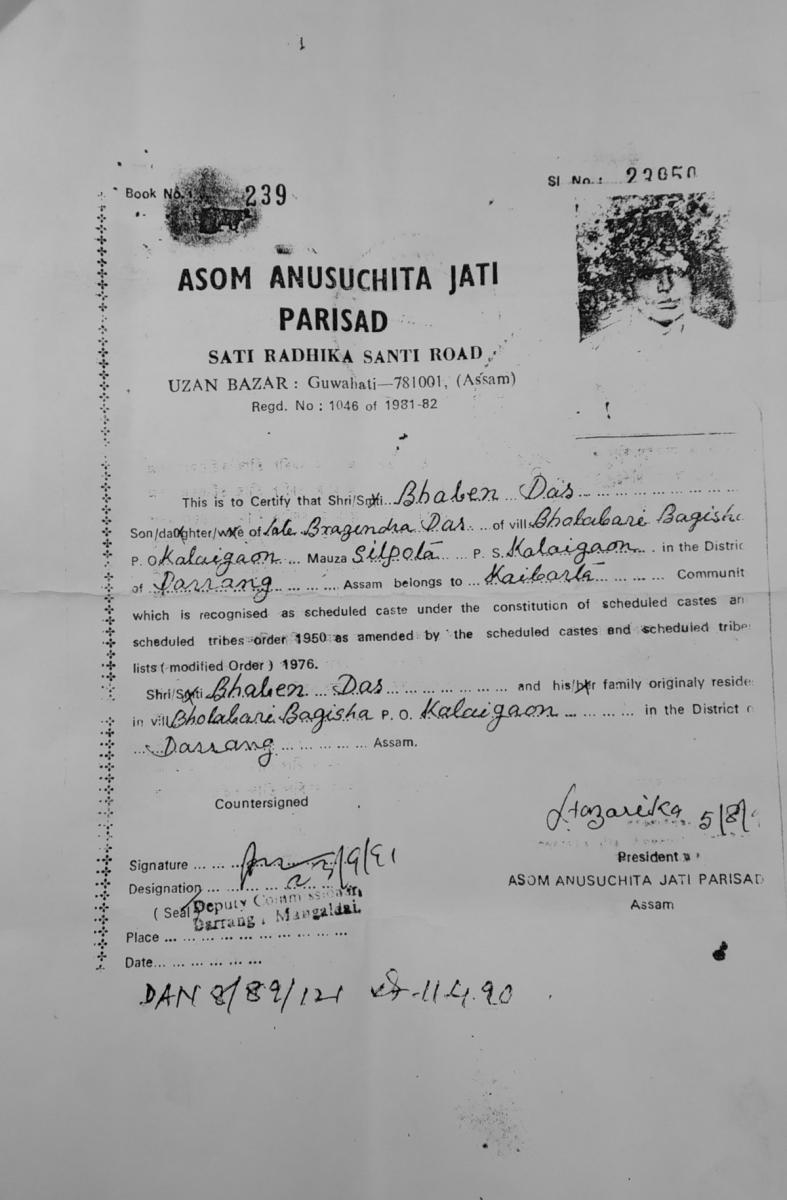 Book No. 239
Sl No.: 23050
ASOM ANUSUCHITA JATI
PARISAD
SATI RADHIKA SANTI ROAD
UZAN BAZAR : Guwahati—781001, (Assam)
Regd. No : 1046 of 1981-82
This is to Certify that Shri/Smti... Bhaben ... Das ... ... ... ... ... ... ...
Son/daughter/wife of late Bragendra Das ... of vill Bholabari Bagisha
P. O. Kalaigaon ... Mauza Silpota ... P. S. Kalaigaon ... in the Distric
of Darrang ... ... ... Assam belongs to ... Kaibarta ... ... ... Communit
which is recognised as scheduled caste under the constitution of scheduled castes an
scheduled tribes order 1950 as amended by the scheduled castes and scheduled tribe
lists ( modified Order ) 1976.
Shri/Smti Bhaben ... Das ... ... ... ... ... ... and his/her family originaly reside
in vill Bholabari Bagisha P. O. Kalaigaon ... ... ... ... in the District o
... Darrang ... ... ... ... ... Assam.
Countersigned
Hazarika 5/8/9
Signature ... ... /9/91
President
Designation ... ... ... ... ...
ASOM ANUSUCHITA JATI PARISAD
( Seal ) Deputy Commissioner,
Assam
Darrang, Mangaldai.
Place ... ... ... ... ... ... ... ... ... ...
Date... ... ... ... ... ...
DAN 8/89/121 11.4.90